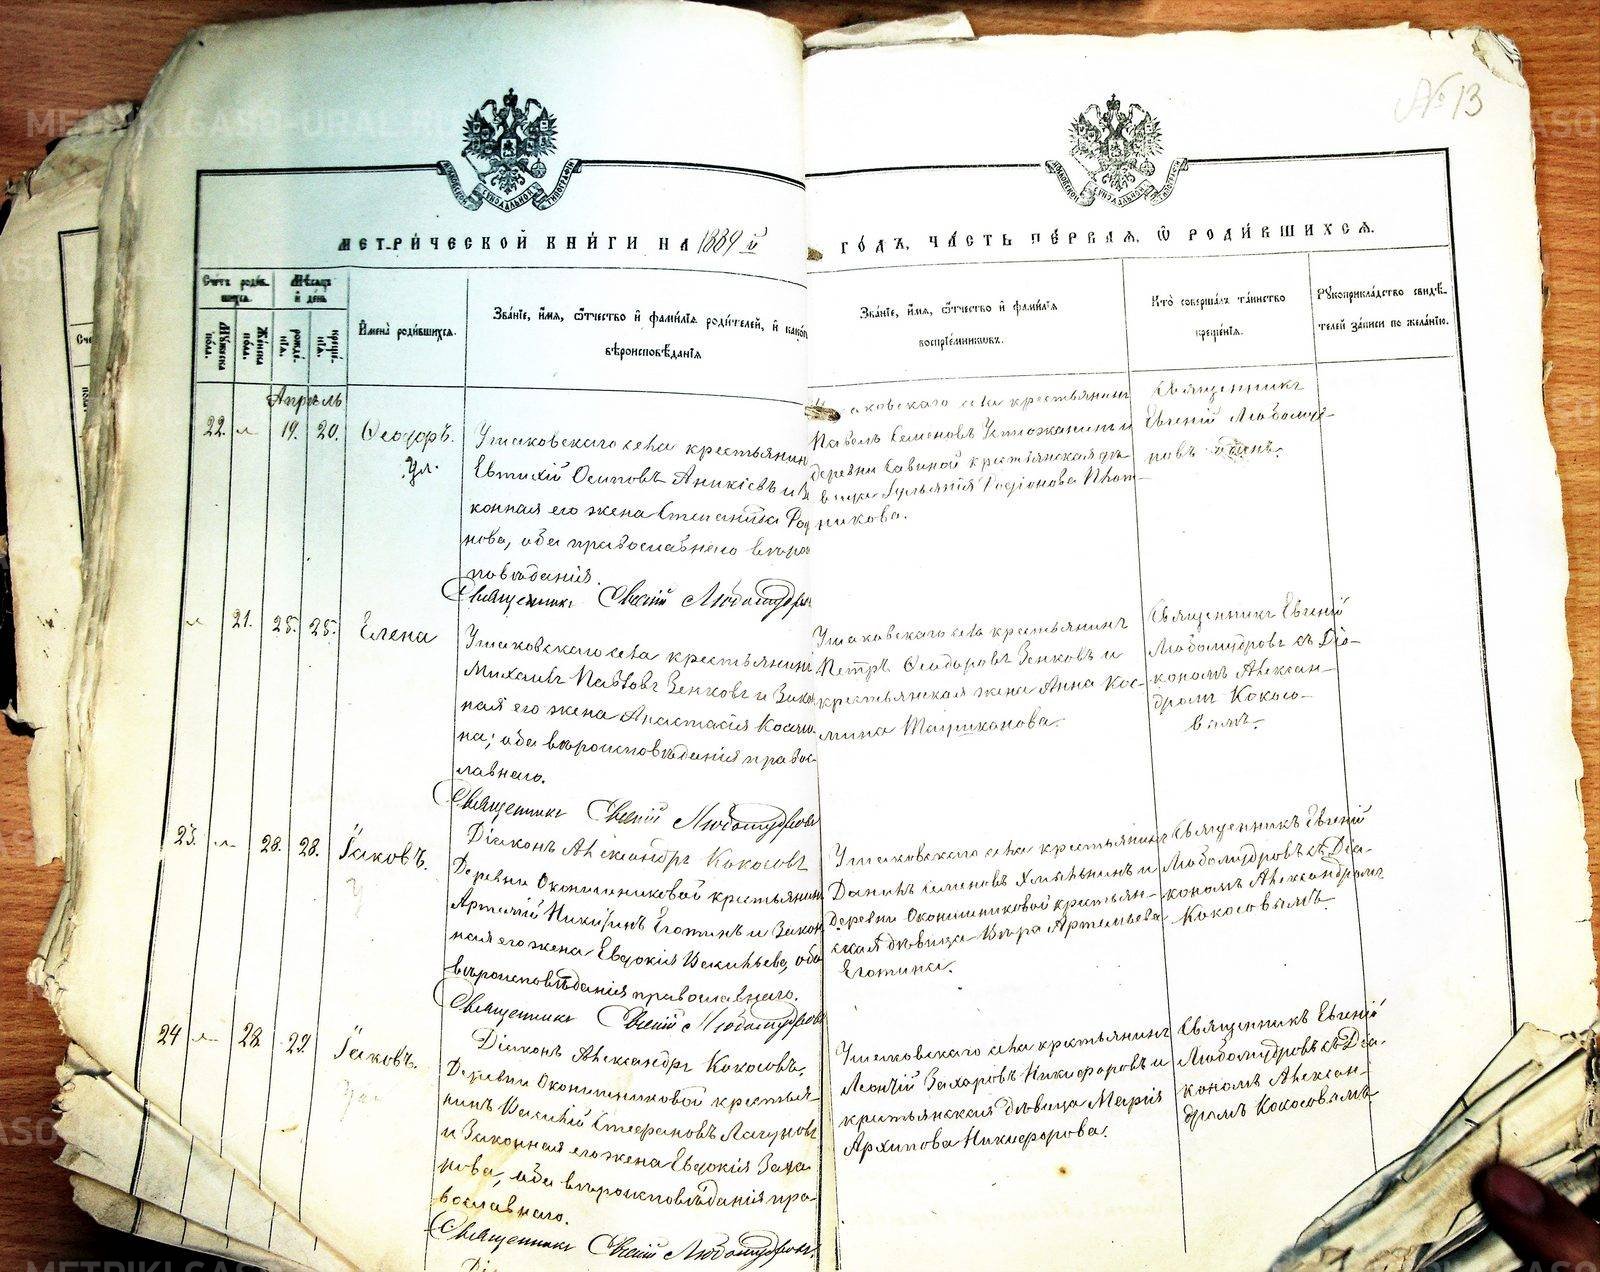 № 13
МЕТРИ́ЧЕСКОЙ КНИ́ГИ НА 1889 й
ГО́ДЪ, ЧА́СТЬ ПЕ́РВАЯ, Ѿ РОДИ́ВШИХСЯ.
Счетъ родив-
шихся.
Мѣсяцъ
и день
Мужеска
пола.
Женска
пола.
рожде-
нія.
креще-
нія.
Имена родившихся.
Званіе, имя, ѿтчество и фамилія родителей, и какого
вѣроисповѣданія
Званіе, имя, ѿтчество и фамилія
воспріемниковъ.
Кто совершалъ таинство
крещенія.
Рукоприкладство свидѣ-
телей записи по желанію.
Апрѣль
22. 19. 20. Ѳеодоръ.
Ум.
Ушаковскаго села крестьянин
Евтихій Осиповъ Аникіевъ и за
конная его жена Стефанида
нова, оба православнаго вѣроис
повѣданія.
Священникъ Евгеній Любомудров
Ушаковскаго села крестьянинъ
Павелъ Семеновъ и
деревни Савиной крестьянская дѣ-
вица Родіонова
никова.
Священникъ
Евгеній Любомудро-
новъ
21. 25. 25. Елена
Ушаковскаго села крестьянинъ
Михаилъ Павловъ Зенковъ и закон
ная его жена Анастасія Косми
на; оба вѣроисповѣданія правос-
лавнаго.
Священникъ Евгеній Любомудровъ
Діаконъ Александръ Кокосовъ
Ушаковскаго села крестьянинъ
Петръ Ѳеодоровъ Зенковъ и
крестьянская жена Анна Кос-
мина
Священникъ Евгеній
Любомудровъ съ Діа-
кономъ Алексан-
дромъ Кокосо-
вымъ.
23. 28. 28. Іаковъ.
У
Деревни Оконишниковой крестьянин
Артемій Никитинъ Еготинъ и закон
ная его жена Евдокія оба
вѣроисповѣданія православнаго.
Священникъ Евгеній Любомудровъ
Діаконъ Александръ Кокосовъ.
Ушаковскаго села крестьянинъ
Данилъ Семеновъ и
деревни Оконишниковой крестьян-
ская дѣвица Вѣра Артемьева
Еготина.
Священникъ Евгеній
Любомудровъ съ Діа-
кономъ Александромъ
Кокосовымъ
24 28. 29. Іаковъ.
Деревни Оконишниковой крестья-
нинъ Василій Стефановъ Лагуновъ
и законная его жена Евдокія Заха
рова, оба вѣроисповѣданія пра-
вославнаго.
Священникъ Евгеній Любомудровъ.
Ушаковскаго села крестьянинъ
Леонтій Захаровъ Никифоровъ и
крестьянская дѣвица Марія
Архипова Никифорова.
Священникъ Евгеній
Любомудровъ съ Діа-
кономъ Алексан-
дромъ Кокосовымъ